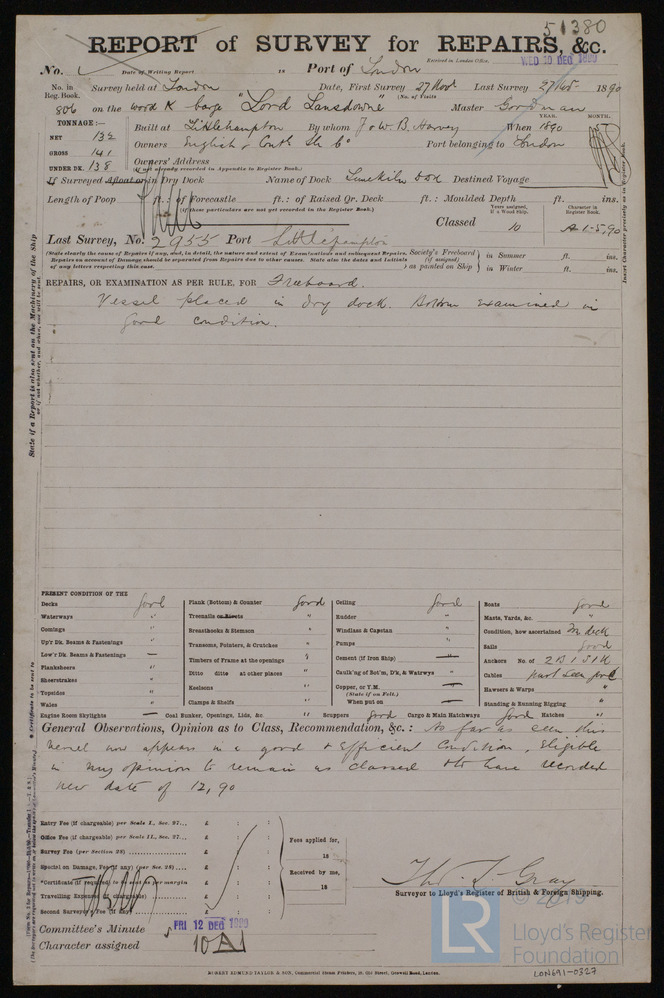 51380
REPORT of SURVEY for REPAIRS, &c.
Received in London Office, WED 10 DEC 1890
No. Date of Writing Report 18 Port of London
No. in Reg. Book. Survey held at London Date, First Survey 27 Nov. Last Survey 27 Nov. 1890
(No. of Visits
806 on the wood K barge "Lord Lansdowne" Master Goodman
TONNAGE:— YEAR. MONTH.
NET 132 Built at Littlehampton By whom J & W. B. Harvey When 1890
GROSS 141 Owners English & Contl. Port belonging to London
UNDER DK. 138 Owners' Address
(if not already recorded in Appendix to Register Book.)
If Surveyed Afloat or in Dry Dock Name of Dock Limekiln Dock Destined Voyage
Length of Poop ft.: of Forecastle ft.: of Raised Qr. Deck ft.: Moulded Depth ft. ins.
(if these particulars are not yet recorded in the Register Book.)
Years assigned, if a Wood Ship. Character in Register Book.
Classed 10 A 1-5,90
Last Survey, No. 2955 Port Littlehampton
(State clearly the cause of Repairs if any, and, in detail, the nature and extent of Examinations and subsequent Repairs.
Repairs on account of Damage should be separated from Repairs due to other causes. State also the dates and initials
of any letters respecting this case.
Society's Freeboard (if assigned) as painted on Ship
in Summer ft. ins.
in Winter ft. ins.
REPAIRS, OR EXAMINATION AS PER RULE, FOR Freeboard.
Vessel placed in dry dock. Bottom examined in
good condition.
PRESENT CONDITION OF THE
Decks good Plank (Bottom) & Counter good Ceiling good Boats good
Waterways " Treenails or Rivets " Rudder " Masts, Yards, &c. "
Comings " Breasthooks & Stemson " Windlass & Capstan " Condition, how ascertained In dock
Up'r Dk. Beams & Fastenings " Transoms, Pointers, & Crutches " Pumps " Sails good
Low'r Dk. Beams & Fastenings — Timbers of Frame at the openings " Cement (if Iron Ship) — Anchors No. of 2B 1S 1K
Planksheers " Ditto ditto at other places " Caulk'ng of Bot'm, D'k, & Watrwys " Cables part seen good
Sheerstrakes " Keelsons " Copper, or Y.M. — Hawsers & Warps "
Topsides " (State if on Felt.)
Wales " Clamps & Shelfs " When put on — Standing & Running Rigging "
Engine Room Skylights — Coal Bunker, Openings, Lids, &c. " Scuppers good Cargo & Main Hatchways good Hatches "
General Observations, Opinion as to Class, Recommendation, &c.: As far as seen this
vessel now appears in a good & efficient condition, eligible
in my opinion to remain as classed & to have recorded
new date of 12,90
Entry Fee (if chargeable) per Scale I., Sec. 27... £ : :
Office Fee (if chargeable) per Scale II., Sec. 27... £ : :
Survey Fee (per Section 28) £ : :
Special on Damage, Fee (if any) (per Sec. 28) £ : :
*Certificate (if required) to be sent as per margin £ : :
Travelling Expenses (if chargeable) £ : :
Second Surveyor's Fee (if any) £ : :
Fees applied for,
18
Received by me,
18
Thos. J. Gray
Surveyor to Lloyd's Register of British & Foreign Shipping.
Committee's Minute FRI 12 DEC 1890
Character assigned 10 A1
ROBERT EDMUND TAYLOR & SON, Commercial Steam Printers, 19, Old Street, Goswell Road, London.
State if a Report is also sent on the Machinery of the Ship
or if not whether, and when, one will be sent.
* Certificate to be sent to
Insert Character precisely as in Register Book.
LR
© 2019
Lloyd's Register
Foundation
LON691-0327